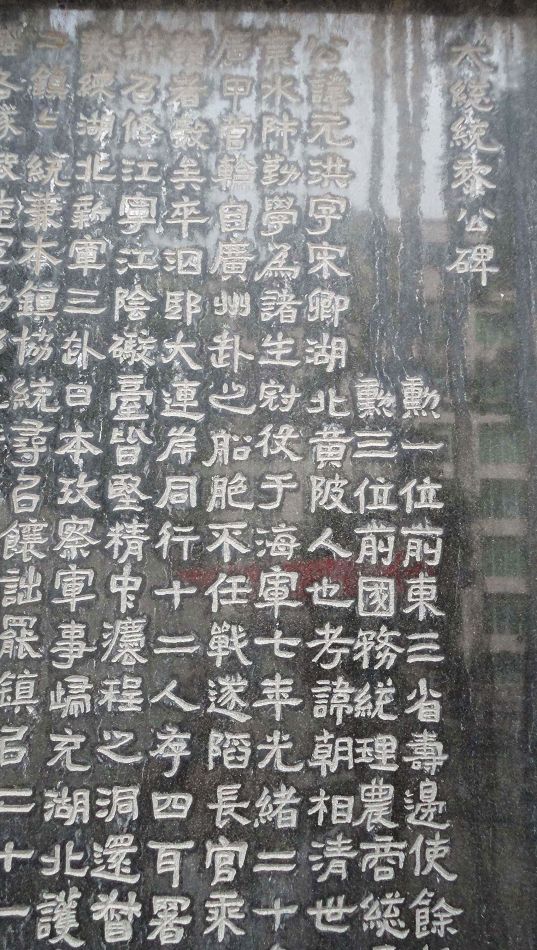 大總統黎公碑
勳一位前東三省籌邊使餘
勳三位前國務總理農商總
公諱元洪字宋卿湖北黃陂人也考諱朝相清世
業水師勤學為諸生冠役于海軍七年光緒二十
廣甲管輪自廣州赴之船脆不任戰遂陷長官乘
者數矣卒泅邸大連岸同行十二人存四耳署
召修江寧江陰礮臺皆堅精中灋程之洞還督
教練湖北新軍三赴日本攷察軍事歸充湖北護
二鎮統兼本鎮協統尋以饟詘罷鎮以二十一